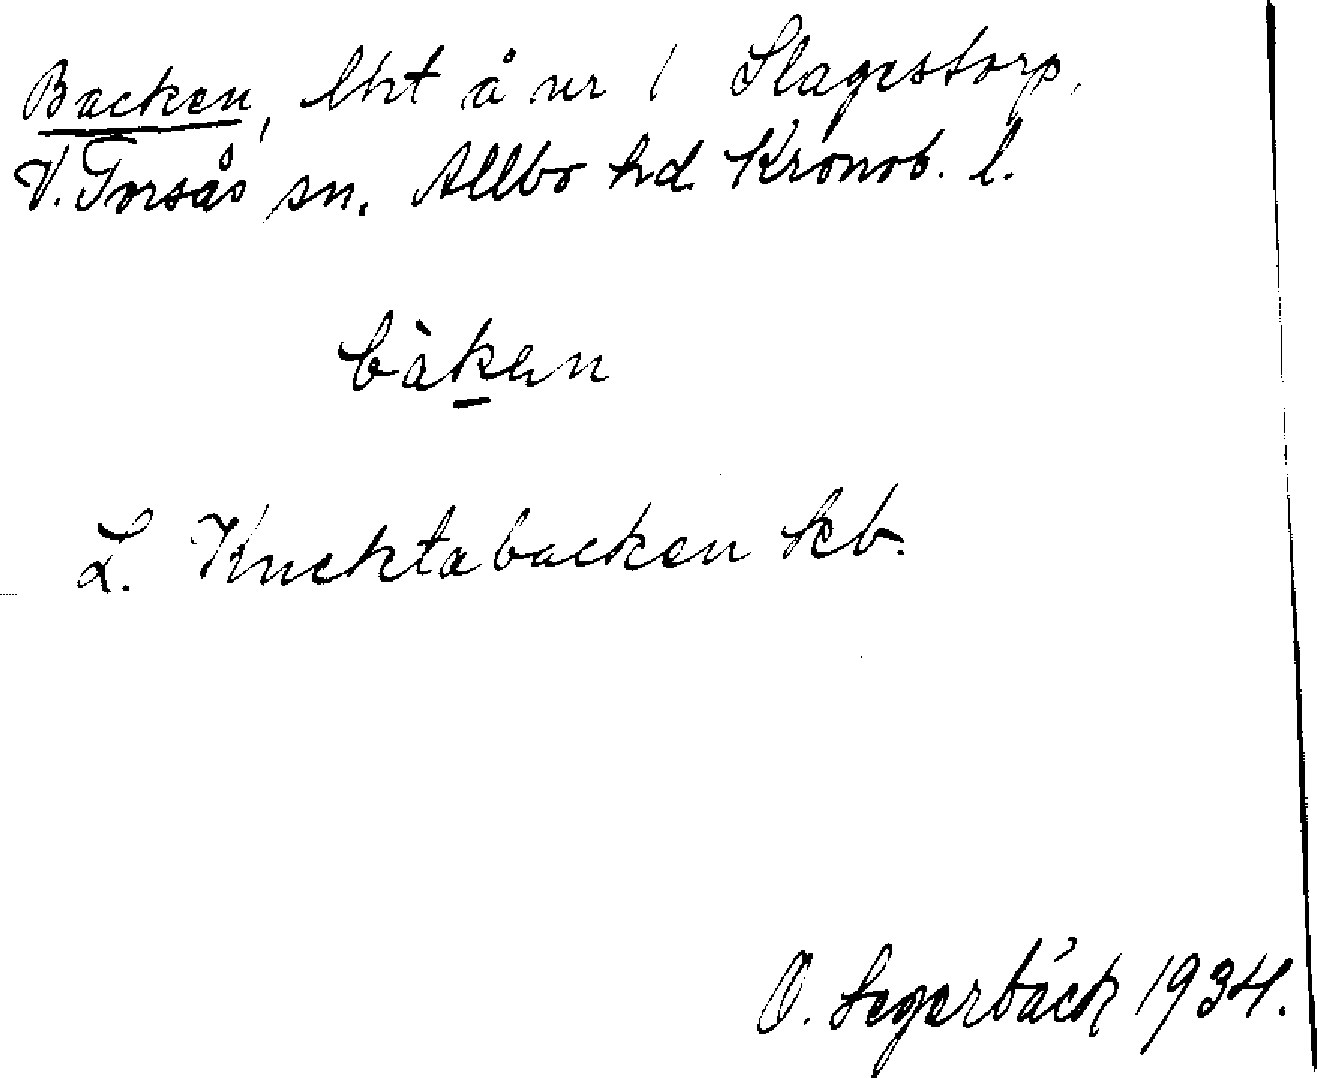 Backen, lht å nr 1 Slagestorp,
V. Torsås sn. Allbo hd Kronob. l.
bàken
L. Knektabacken kb.
O. Segerbäck 1934.